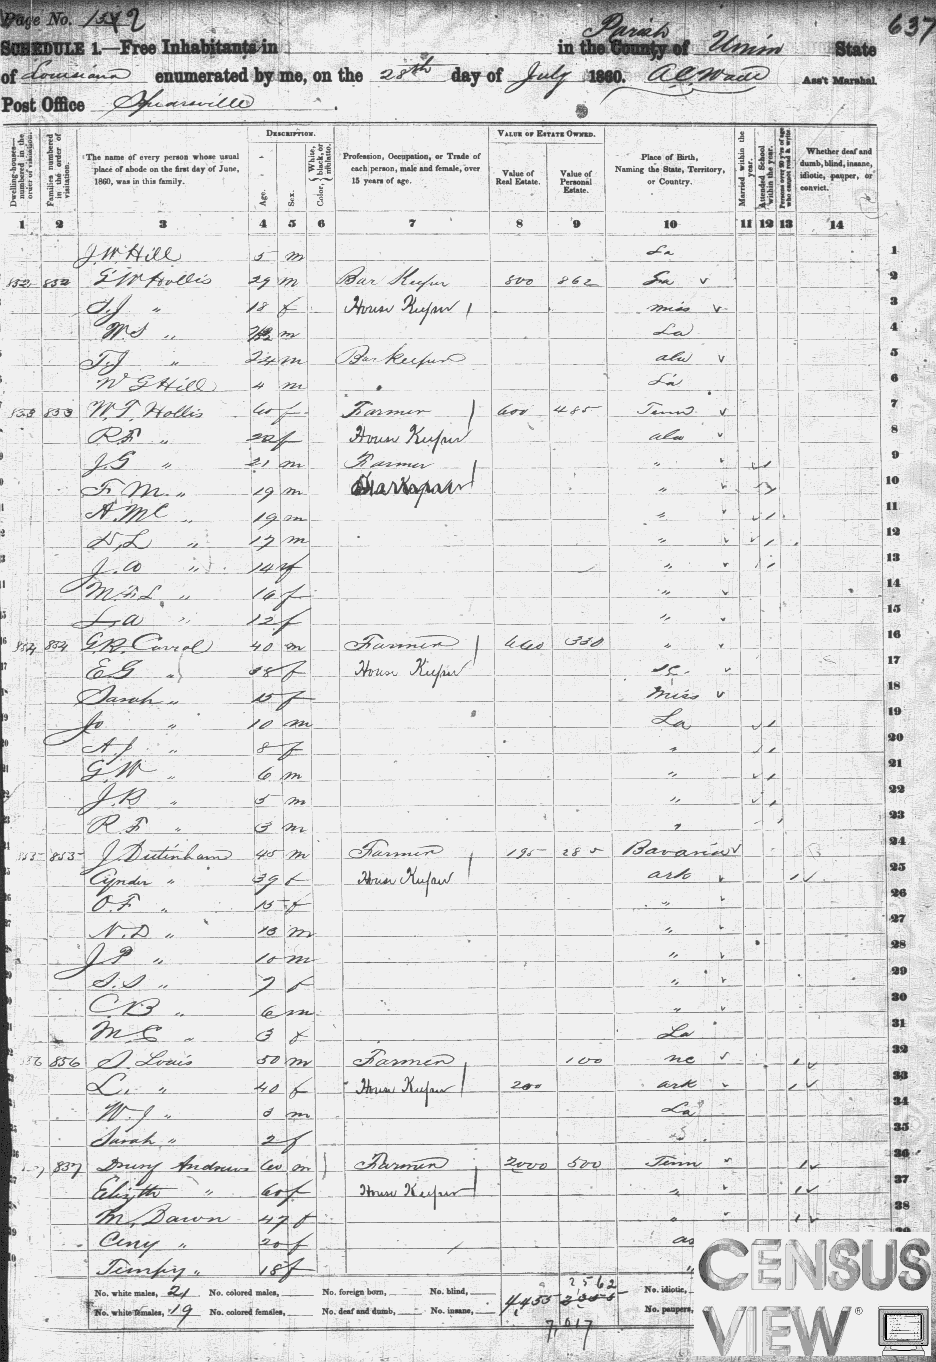 Page No. 152
637
SCHEDULE 1.—Free Inhabitants in in the County of Parish Union State
of Louisiana enumerated by me, on the 28th day of July 1860. A.C. Wade Ass't Marshal.
Post Office Spearsville
DESCRIPTION. VALUE OF ESTATE OWNED.
Dwelling-houses—numbered in the order of visitation.
Families numbered in the order of visitation.
The name of every person whose usual place of abode on the first day of June, 1860, was in this family.
Age.
Sex.
Color, White, black, or mulatto.
Profession, Occupation, or Trade of each person, male and female, over 15 years of age.
Value of Real Estate.
Value of Personal Estate.
Place of Birth, Naming the State, Territory, or Country.
Married within the year.
Attended School within the year.
Persons over 20 y'rs of age who cannot read & write.
Whether deaf and dumb, blind, insane, idiotic, pauper, or convict.
1 2 3 4 5 6 7 8 9 10 11 12 13 14
J. W. Hill 5 m La 1
852 G W Hollis 29 m Bar Keeper 800 862 v 2
S. J " 18 f House Keeper miss v 3
W. S " m La 4
T. J " 24 m Bar keeper ala v 5
W G Hill 4 m La 6
853 W. T. Hollis 60 f Farmer 600 485 Tenn v 7
R. F " 22 f House Keeper ala v 8
J. G " 21 m Farmer " v 9
F. M. " 19 m " v 10
A. M C " 19 m " v 11
D, L " 17 m " v 12
J. A " 14 f " v 13
M. L " 16 f " v 14
L. A " 12 f " 15
854 854 G. R. Carrol 40 m Farmer 660 330 " v 16
E G " 38 f House Keeper v 17
Sarah " 15 f Miss v 18
Jo " 10 m La 19
A. J " 8 f " 20
G. W " 6 m " 21
J. B " 5 m " 22
R. F " 3 m " 23
855 J. Dutinham 45 m Farmer 195 285 Bavaria v 24
Cynder " 39 f House Keeper ark v 25
O. F " 15 f " v 26
N. D " 13 m " v 27
J P " 10 m " v 28
S. S " 7 f " v 29
C. B " 6 m " v 30
M. E " 3 f La 31
856 S. Louis 50 m Farmer 100 nc v 32
L. " 40 f House Keeper 200 ark v 33
W. J " 3 m La 34
Sarah " 2 f 35
857 Drury Andrews 60 m Farmer 2000 500 Tenn v 36
Elizth " 60 f House Keeper " v 37
M. Dawn 47 f " v 38
Ceny " 20 f 39
Tempy " 18 f "
No. white males, 21 No. colored males, No. foreign born, No. blind, No. idiotic,
No. white females, 19 No. colored females, No. deaf and dumb, No. insane, No. paupers,
4,455 2562
7,017
CENSUS
VIEW ®